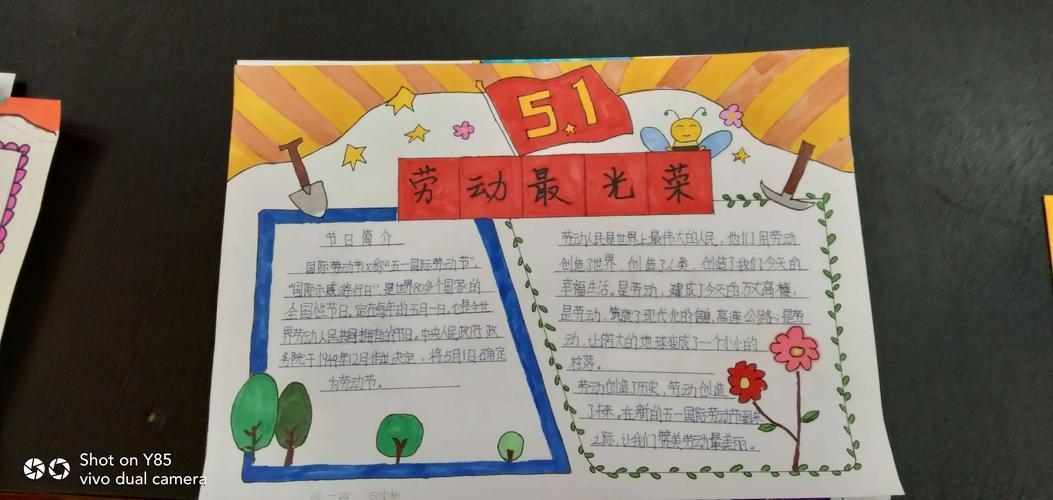 5.1
劳动最光荣
节日简介
国际劳动节又称“五一国际劳动节”,
“国际示威游行日”,是世界80多个国家的
全国性节日。定在每年的五月一日。它是全世
界劳动人民共同拥有的节日。中央人民政府政
务院于1949年12月作出决定,将5月1日确定
为劳动节。
劳动人民是世界上最伟大的人民,他们用劳动
创造了世界,创造了人类,创造了我们今天的
幸福生活。是劳动,建成了今天的万丈高楼,
是劳动,筑就了现代化的信息高速公路;是劳
动,让偌大的地球变成了一个小小的
村落。
劳动创造了历史,劳动创造
了未来。在新的五一国际劳动节到来
之际,让我们赞美劳动最美丽。
Shot on Y85
vivo dual camera